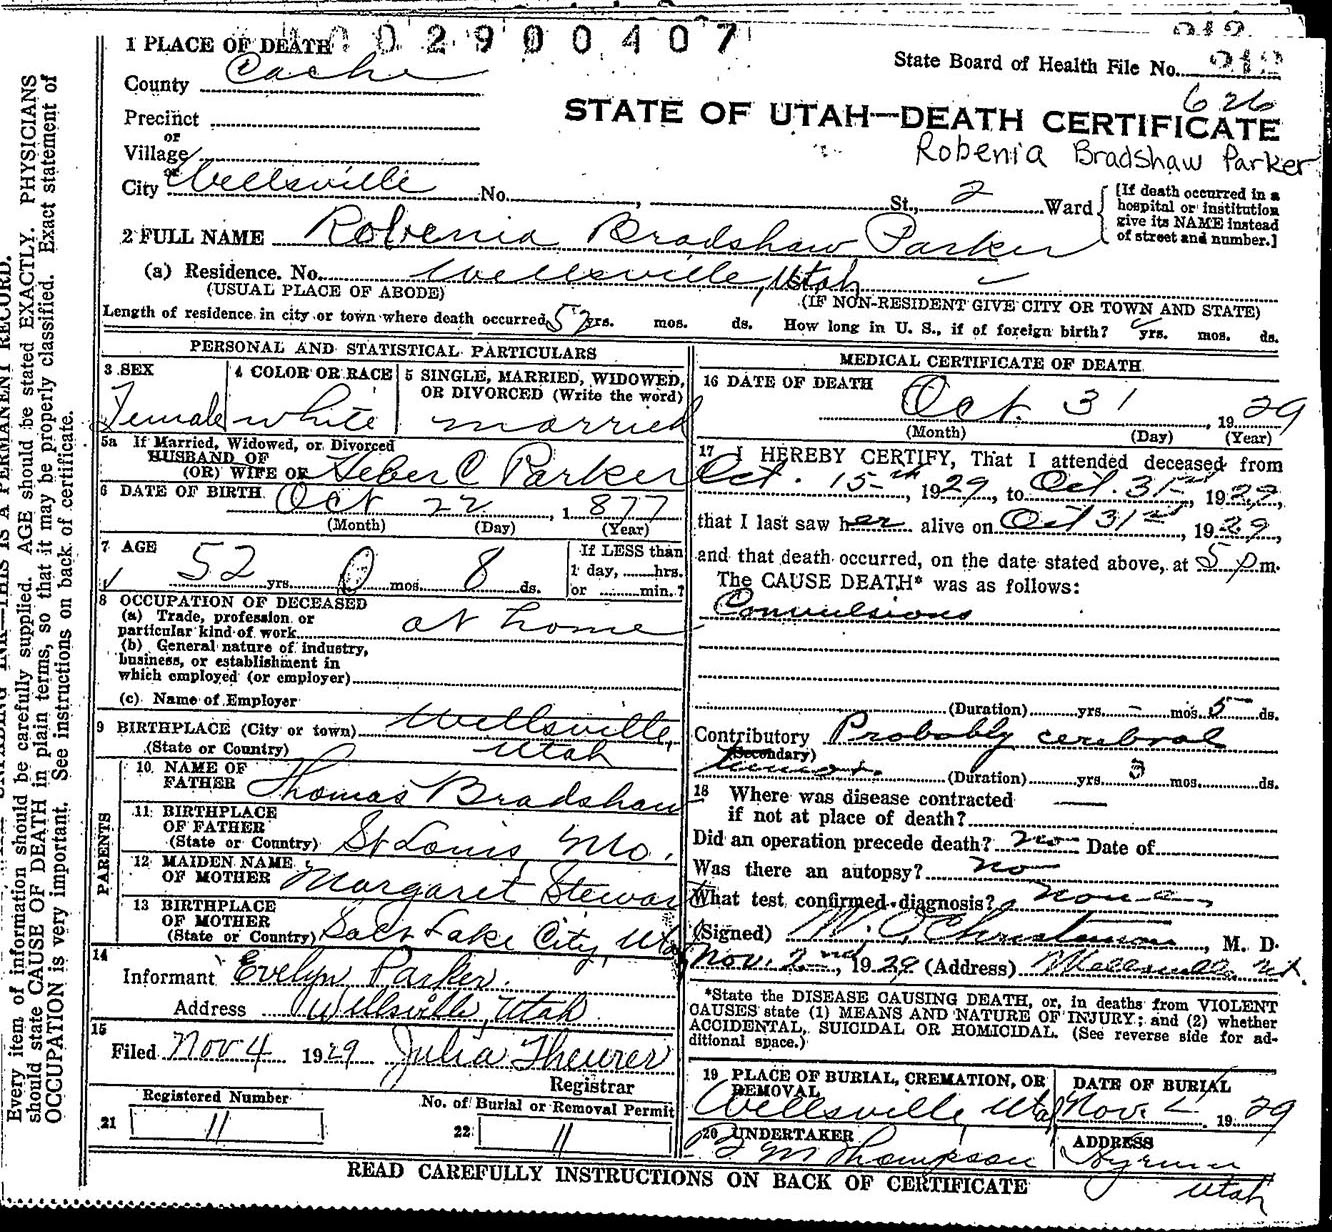 1002900407
1 PLACE OF DEATH
State Board of Health File No. 212
County Cache
626
STATE OF UTAH—DEATH CERTIFICATE
Precinct
or
Village
Robenia Bradshaw Parker
or
City Wellsville No. , St., 2 Ward
[If death occurred in a
hospital or institution
give its NAME instead
of street and number.]
2 FULL NAME Robenia Bradshaw Parker
(a) Residence. No. Wellsville, Utah
(USUAL PLACE OF ABODE) (IF NON-RESIDENT GIVE CITY OR TOWN AND STATE)
Length of residence in city or town where death occurred 52 yrs. mos. ds. How long in U. S., if of foreign birth? yrs. mos. ds.
PERSONAL AND STATISTICAL PARTICULARS
3 SEX
Female
4 COLOR OR RACE
white
5 SINGLE, MARRIED, WIDOWED,
OR DIVORCED (Write the word)
married
5a If Married, Widowed, or Divorced
HUSBAND OF
(OR) WIFE OF Heber C Parker
6 DATE OF BIRTH Oct 22, 1877
(Month) (Day) (Year)
7 AGE
52 yrs. 0 mos. 8 ds.
If LESS than
1 day, ......hrs.
or ......min.?
8 OCCUPATION OF DECEASED
(a) Trade, profession or
particular kind of work at home
(b) General nature of industry,
business, or establishment in
which employed (or employer)
(c) Name of Employer
9 BIRTHPLACE (City or town) Wellsville,
(State or Country) Utah
PARENTS
10 NAME OF
FATHER Thomas Bradshaw
11 BIRTHPLACE
OF FATHER
(State or Country) St Louis, Mo.
12 MAIDEN NAME
OF MOTHER Margaret Stewart
13 BIRTHPLACE
OF MOTHER
(State or Country) Salt Lake City, Utah
14
Informant Evelyn Parker.
Address Wellsville, Utah
15
Filed Nov 4 1929 Julia Theurer
Registrar
Registered Number
21 11
No. of Burial or Removal Permit
22 11
MEDICAL CERTIFICATE OF DEATH
16 DATE OF DEATH
Oct. 31, 1929
(Month) (Day) (Year)
17 I HEREBY CERTIFY, That I attended deceased from
Oct. 15th, 1929, to Oct. 31st, 1929,
that I last saw her alive on Oct 31st, 1929,
and that death occurred, on the date stated above, at 5 p.m.
The CAUSE DEATH* was as follows:
Convulsions
(Duration) yrs. - mos. 5 ds.
Contributory Probably cerebral
(Secondary)
tumor. (Duration) yrs. 3 mos. ds.
18 Where was disease contracted
if not at place of death?
Did an operation precede death? no Date of
Was there an autopsy? no
What test confirmed diagnosis? none
(Signed) W. O. Christenson, M. D.
Nov. 2nd, 1929 (Address) Wellsville Ut.
*State the DISEASE CAUSING DEATH, or, in deaths from VIOLENT
CAUSES state (1) MEANS AND NATURE OF INJURY; and (2) whether
ACCIDENTAL, SUICIDAL OR HOMICIDAL. (See reverse side for ad-
ditional space.)
19 PLACE OF BURIAL, CREMATION, OR
REMOVAL
Wellsville, Utah
DATE OF BURIAL
Nov. 1929
20 UNDERTAKER
B M Thompson
ADDRESS
Hyrum
Utah
READ CAREFULLY INSTRUCTIONS ON BACK OF CERTIFICATE
THIS IS A PERMANENT RECORD.
Every item of information should be carefully supplied. AGE should be stated EXACTLY. PHYSICIANS
should state CAUSE OF DEATH in plain terms, so that it may be properly classified. Exact statement of
OCCUPATION is very important. See instructions on back of certificate.